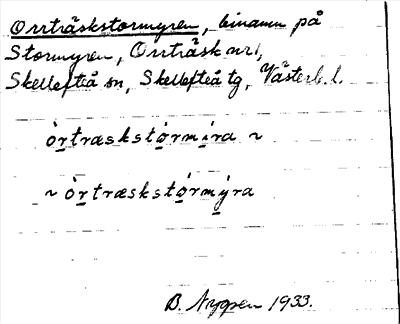 Orrträskstormyren, binamn på
Stormyren, Orrträsk nr 1,
Skellefteå sn, Skellefteå tg, Västerb. l.
òrtræskstórmíra ~
~ òrtræskstórmýra
B. Nygren 1933.